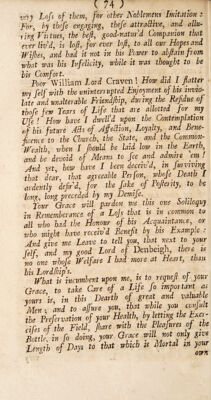 ( 74 )
very Loss of them, for other Noblemens Imitation :
For, by these engaging, these attractive, and allu-
ring Virtues, the best, good-natur'd Companion that
ever liv'd, is lost, for ever lost, to all our Hopes and
Wishes, and had it not in his Power to abstain from
what was his Infelicity, while it was thought to be
his Comfort.
Poor William Lord Craven! How did I flatter
my self with the uninterrupted Enjoyment of his invio-
late and unalterable Friendship, during the Residue of
those few Years of Life that are allotted for my
Use! How have I dwell'd upon the Contemplation
of his future Acts of Affection, Loyalty, and Bene-
ficence to the Church, the State, and the Common-
Wealth, when I should be laid low in the Earth,
and be devoid of Means to see and admire 'em!
And yet, how have I been deceiv'd, in surviving
that dear, that agreeable Person, whose Death I
ardently desir'd, for the sake of Posterity, to be
long, long preceded by my Demise.
Your Grace will pardon me this one Soliloquy
in Remembrance of a Loss that is in common to
all who had the Honour of his Acquaintance, or
who might have receiv'd Benefit by his Example :
And give me Leave to tell you, that next to your
self, and my good Lord of Denbeigh, there is
no one whose Welfare I had more at Heart, than
his Lordship's.
What is incumbent upon me, is to request of your
Grace, to take Care of a Life so important as
yours is, in this Dearth of great and valuable
Men; and to assure you, that while you consult
the Preservation of your Health, by letting the Exer-
cises of the Field, share with the Pleasures of the
Bottle, in so doing, your Grace will not only give
Length of Days to that which is Mortal in your
own